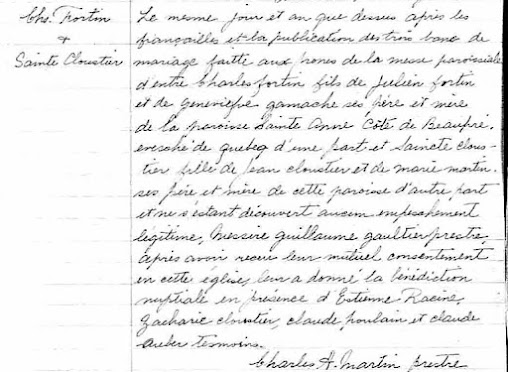 Chs. Fortin
+
Sainte Cloustier
Le meme jour et an que dessus après les
fiançailles et la publication des trois banc de
mariage faitte aux prones de la messe paroissiale
d'entre Charles fortin fils de Julien fortin
et de geneviefve gamache ses père et mère
de la paroisse Sainte Anne Côte de Beaupré.
evesché de quebeq d'une part et Saincte clous-
tier fille de Jean cloustier et de marie martin.
ses père et mère de cette paroisse d'autre part
et ne s'estant découvert aucun empeschement
légitime, Messire guillaume gaultier prestre,
après avoir receu leur mutuel consentement
en cette église, leur a donné la bénédiction
nuptiale en présence d'Estienne Racine,
Zacharie cloustier, claude poulain et claude
auber tesmoins.
Charles A. Martin prestre